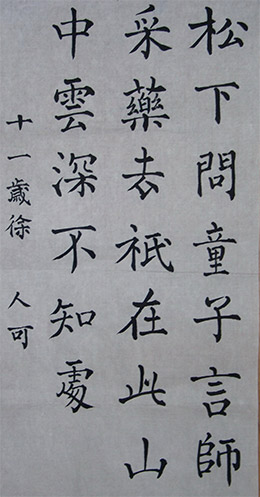 松下問童子言師
采藥去祇在此山
中雲深不知處
十一歲徐 人可